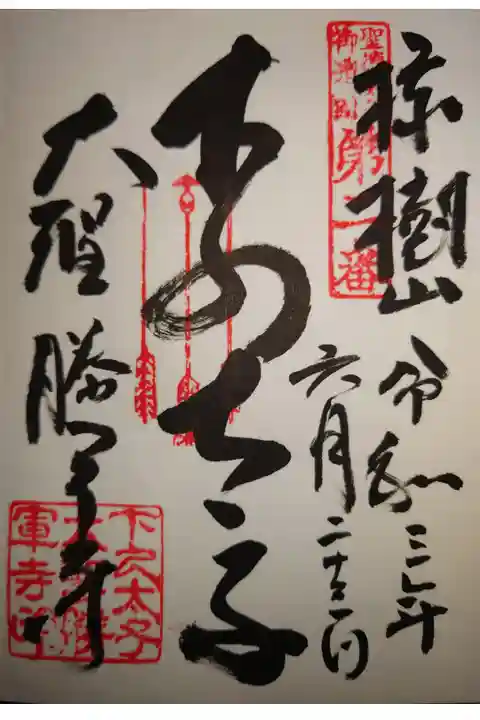 聖徳太子
御遺跡
第二番
椋樹山
令和三年
六月二十二日
下の太子
大聖勝軍寺
下之太子
大聖勝
軍寺印